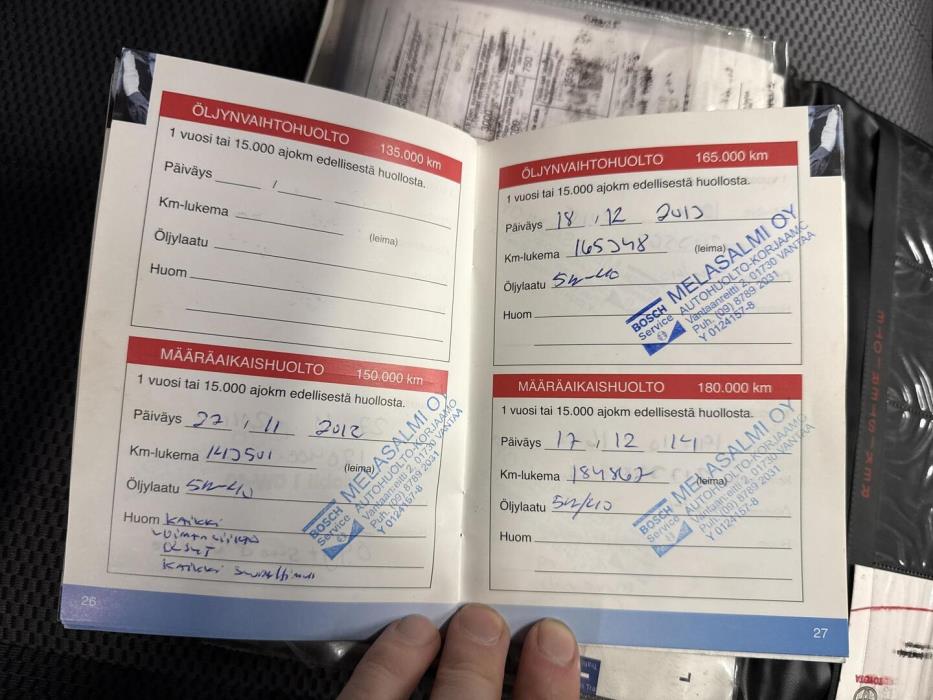 ÖLJYNVAIHTOHUOLTO 135.000 km
1 vuosi tai 15.000 ajokm edellisestä huollosta.
Päiväys /
Km-lukema
(leima)
Öljylaatu
Huom
MÄÄRÄAIKAISHUOLTO 150.000 km
1 vuosi tai 15.000 ajokm edellisestä huollosta.
Päiväys 27 , 11 2012
Km-lukema 143501
(leima)
Öljylaatu 5w-40
Huom Kaikki
Kaikki
BOSCH Service
MELASALMI OY
AUTOHUOLTO-KORJAAMO
Vantaanreitti 2, 01730 VANTAA
Puh. (09) 8789 2031
Y 0124157-8
26
ÖLJYNVAIHTOHUOLTO 165.000 km
1 vuosi tai 15.000 ajokm edellisestä huollosta.
Päiväys 18 , 12 2013
Km-lukema 165348
(leima)
Öljylaatu 5w-40
Huom
BOSCH Service
MELASALMI OY
AUTOHUOLTO-KORJAAMO
Vantaanreitti 2, 01730 VANTAA
Puh. (09) 8789 2031
Y 0124157-8
MÄÄRÄAIKAISHUOLTO 180.000 km
1 vuosi tai 15.000 ajokm edellisestä huollosta.
Päiväys 17 , 12 14
Km-lukema 184867
(leima)
Öljylaatu 5w/40
Huom
BOSCH Service
MELASALMI OY
AUTOHUOLTO-KORJAAMO
Vantaanreitti 2, 01730 VANTAA
Puh. (09) 8789 2031
Y 0124157-8
27